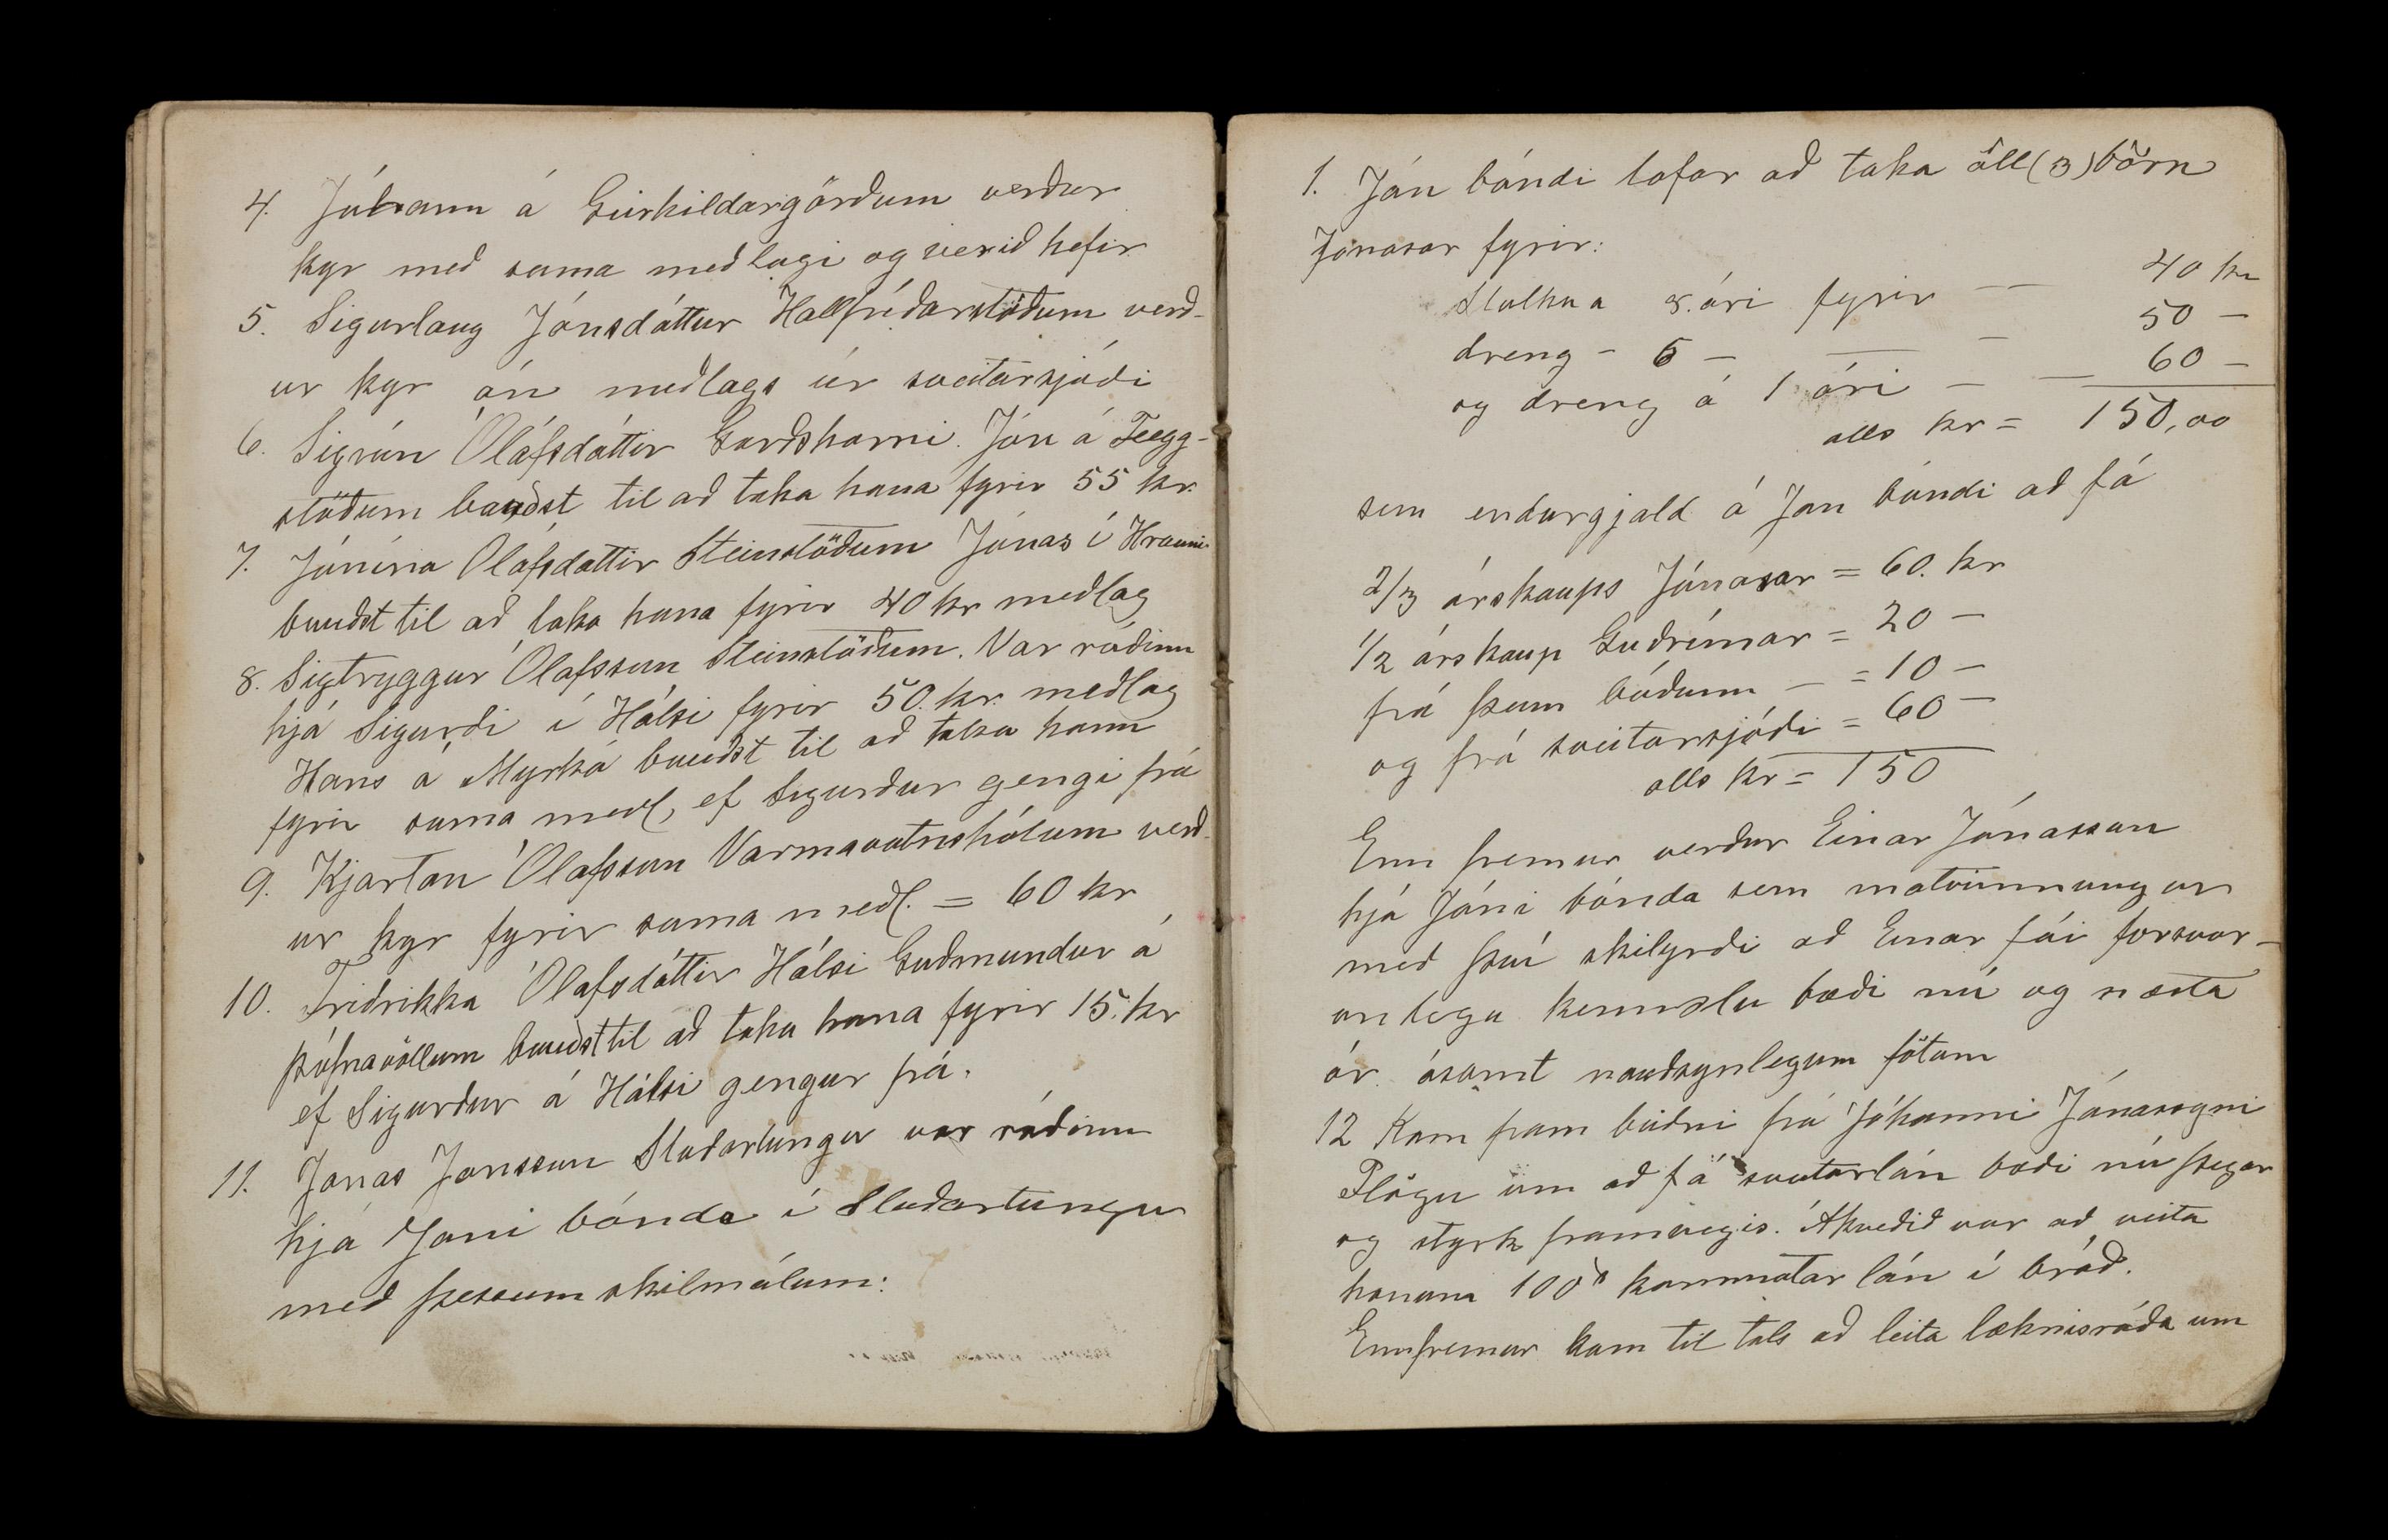 4. Jóhann á Geirhildargörðum verður
kyr með sama meðlagi og verið hefir
5. Sigurlaug Jónsdóttur Hallfríðarstöðum verð-
ur kyr án meðlags úr sveitarsjóði
6. Sigrún Ólafsdóttir Garðshorni. Jón á Flögg-
stöðum bauðst til að taka hana fyrir 55 kr.
7. Jónína Ólafsdottir Steinstöðum Jónas í Hrauni
bauðst til að taka hana fyrir 40 kr meðlag
8. Sigtryggur Ólafsson Steinstöðum. Var ráðinn
hjá Sigurði í Hálsi fyrir 50. kr. meðlag
Hans á Myrká bauðst til að taka hann
fyrir sama meðl, ef Sigurður gengi frá
9. Kjartan Ólafsson Varmavatnshólum verð-
ur kyr fyrir sama meðl. = 60 kr
10. Friðrikka Ólafsdóttir Hálsi Guðmundur á
Þúfnavöllum bauðst til að taka hana fyrir 15. kr
ef Sigurður á Hálsi gengur frá.
11. Jonas Jonsson Sladartungu var ráðinn
hjá Joni bónda í Sladartungu
með þessum skilmálum:
1. Jón bóndi lofar að taka öll (3) börn
Jónasar fyrir:
Stulku a 8. ári fyrir — 40 kr
dreng - 6 — — — 50 —
og dreng á 1 ári — — 60 —
alls kr = 150,00
sem endurgjald á Jon bóndi að fá
2/3 árskaups Jónasar = 60. kr
1/2 árskaup Guðrúnar = 20 —
frá þeim báðum — = 10 —
og frá sveitarsjóði = 60 —
alls kr = 150
Enn fremur verður Einar Jónasson
hjá Jóni bónda sem matvinnungur
með því skilyrði að Einar fái forsvar-
anlega kennslu bæði nú og næsta
ár. ásamt nauðsynlegum fötum
12 Kom fram beiðni frá Jóhanni Jónassyni
Flögu um að fá sveitarlán bæði nú þegar
og styrk framvegis. Ákveðið var að veita
honum 100 kornmatar lán í bráð.
Ennfremur kom til tals að leita læknisráða um